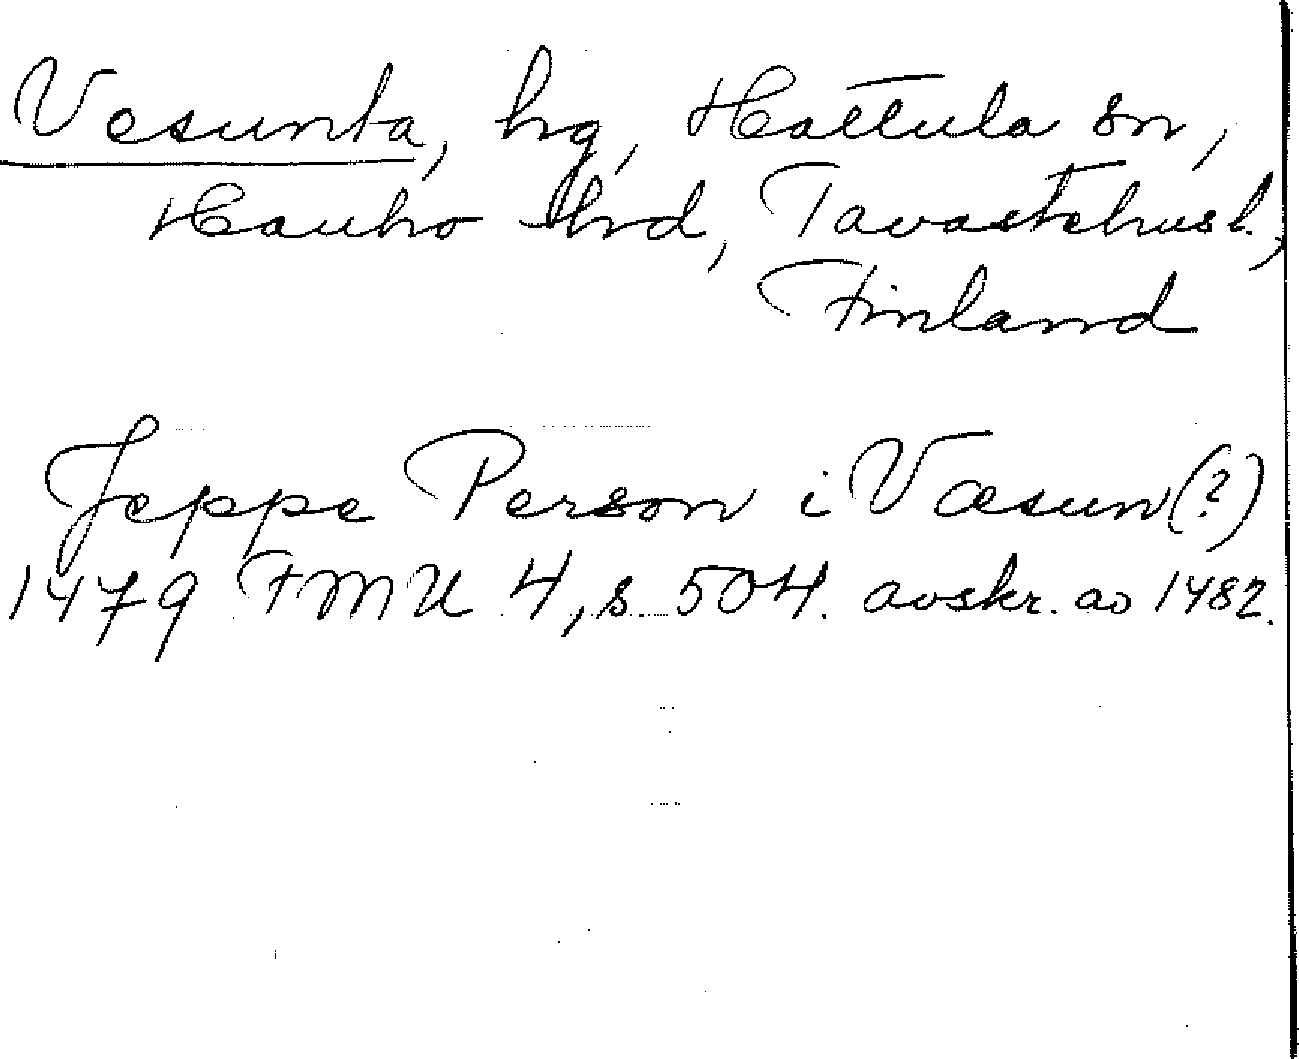 Vesunta, hg, Hattula sn,
Hauho hrd, Tavastehusl.,
Finland
Jeppe Person i Væsun(?)
1479 FMU 4, s 504. avskr. av 1482.